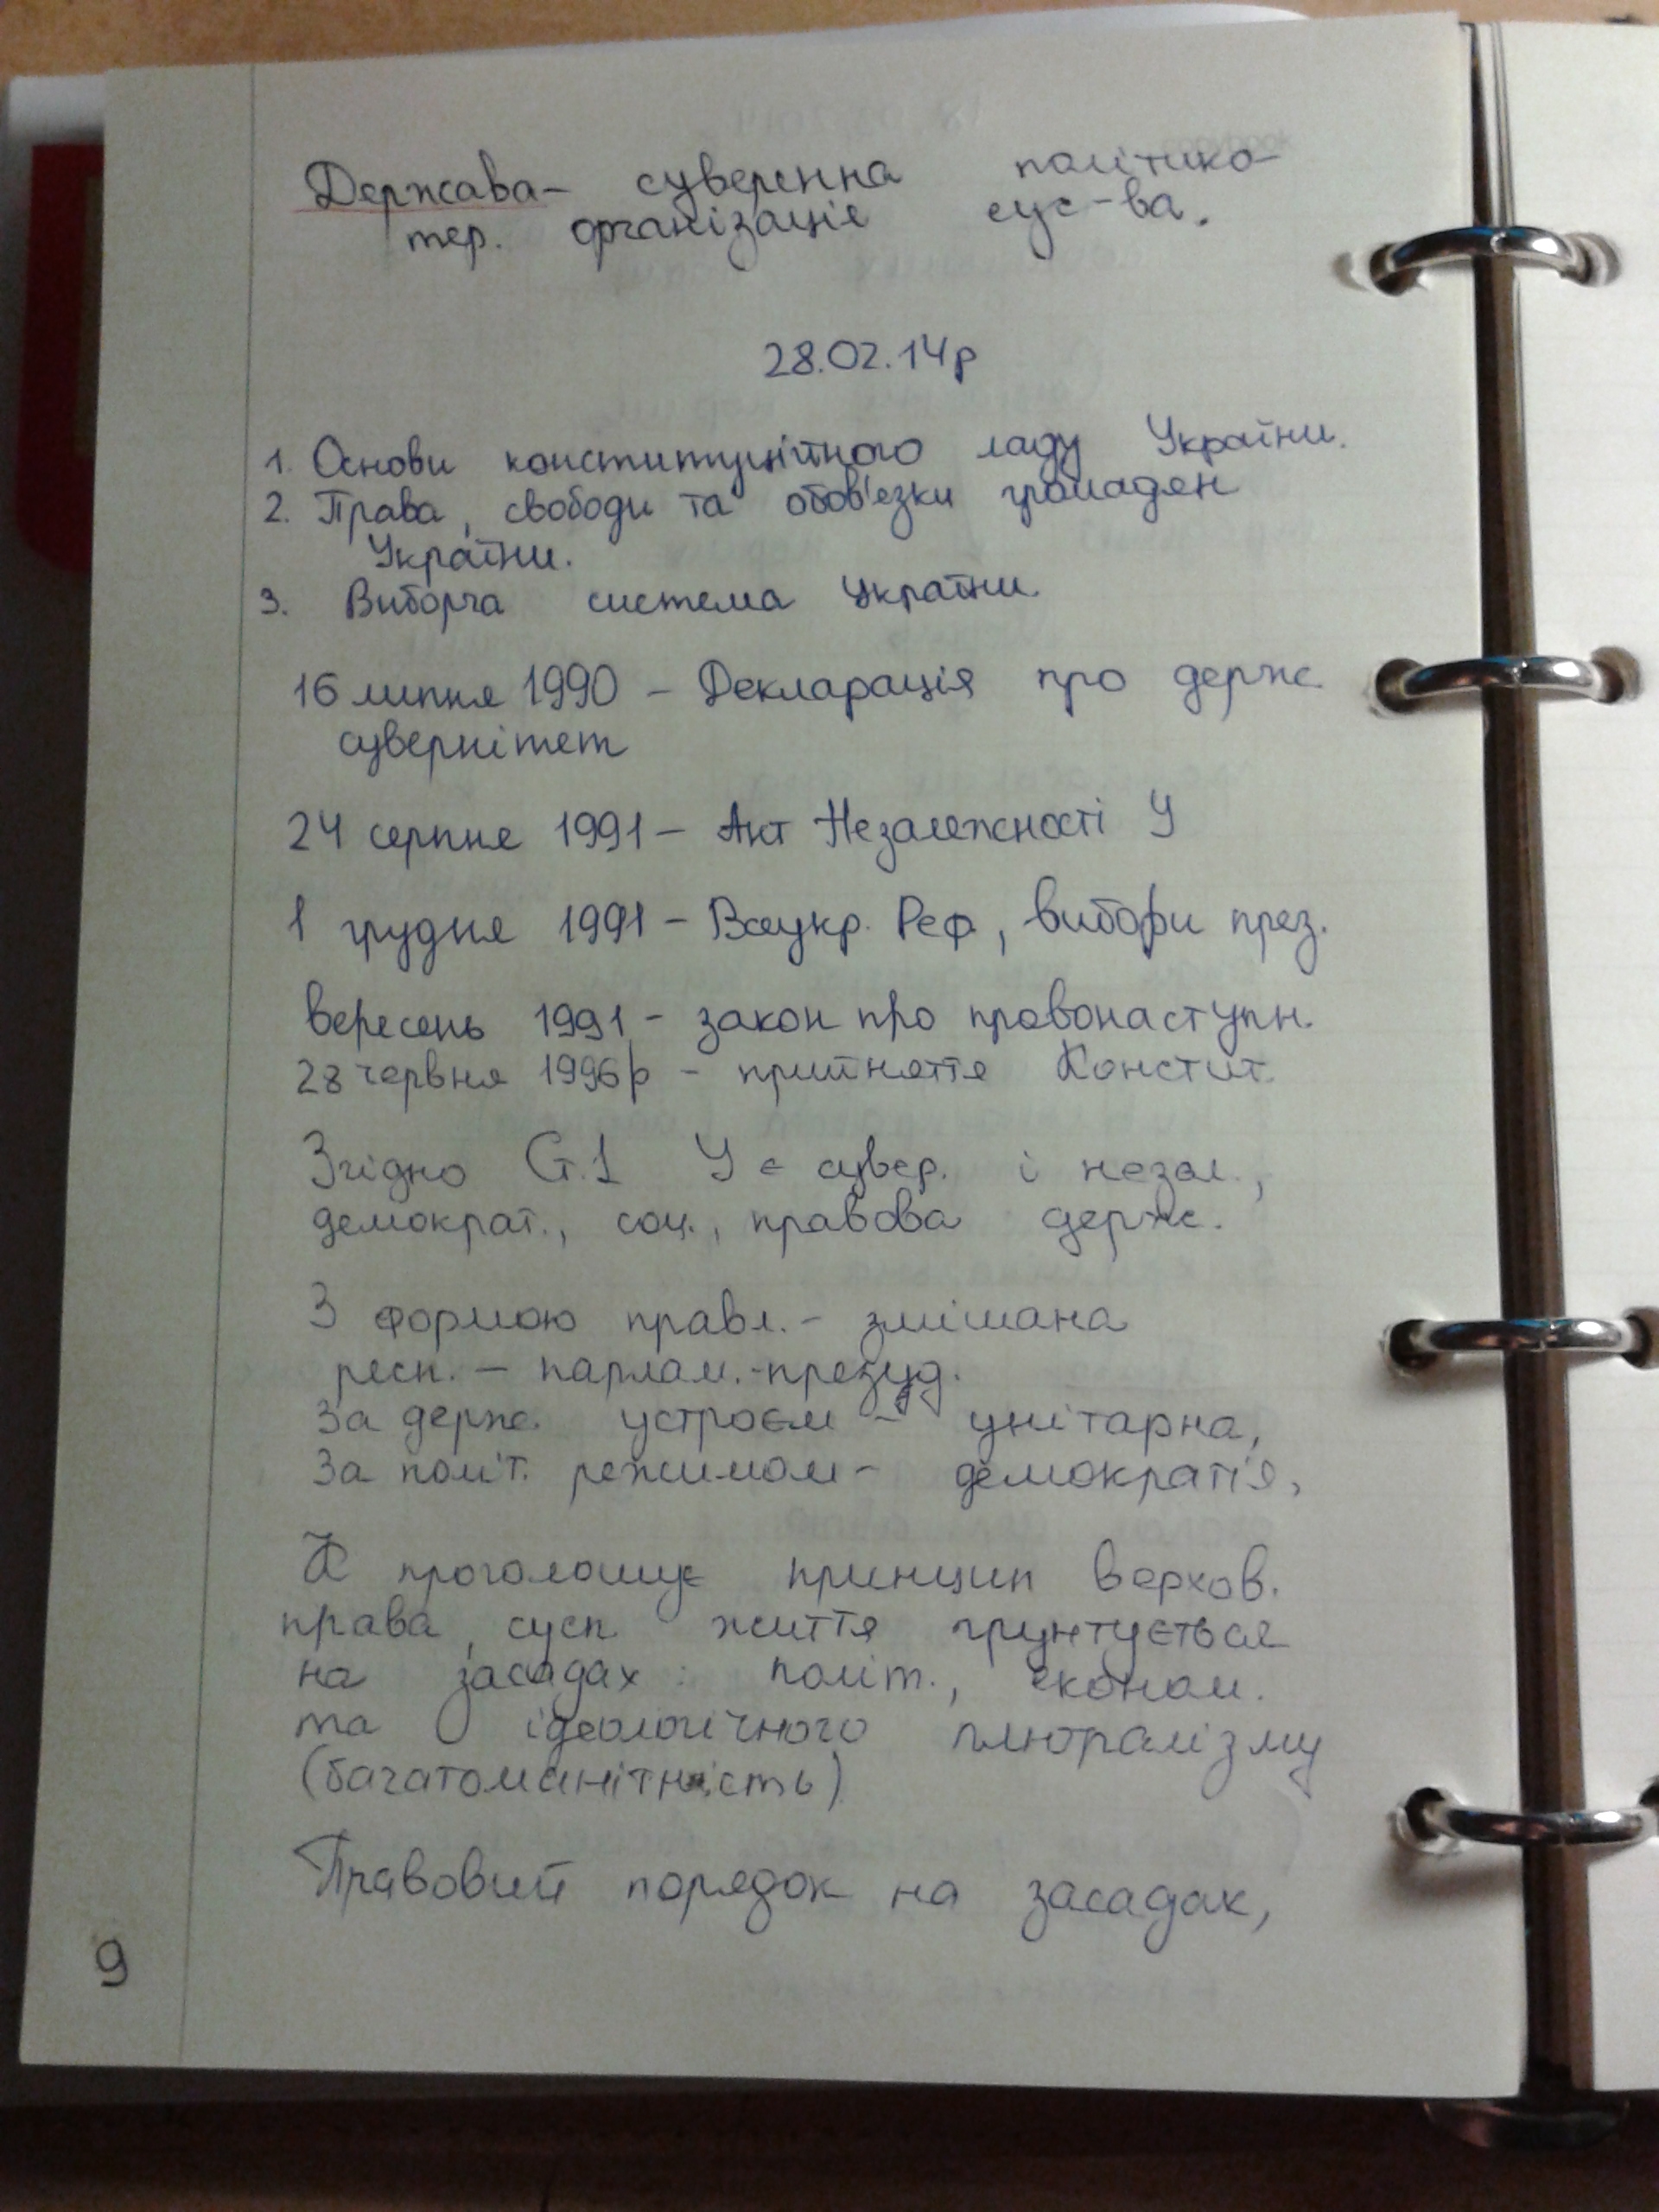 Держава - суверенна політико-
тер. організація сус-ва.
28.02.14р
1. Основи конституційного ладу України.
2. Права, свободи та обов'язки громадян
України.
3. Виборча система України.
16 липня 1990 - Декларація про держ
сувернітет
24 серпня 1991 - Акт Незалежності У
1 грудня 1991 - Всеукр. Реф, вибори през.
вересень 1991 - закон про правонаступн.
28 червня 1996р - прийняття Констит.
Згідно Ст.1 У є сувер. і незал.,
демократ., соц., правова держ.
З формою правл. - змішана
респ. - парлам.-презид.
За держ. устроєм - унітарна,
За політ. режимом - демократія,
К проголошує принцип верхов.
права, сусп життя грунтується
на засадах: політ., економ.
та ідеологічного плюралізму
(багатоманітність)
Правовий порядок на засадах,
9